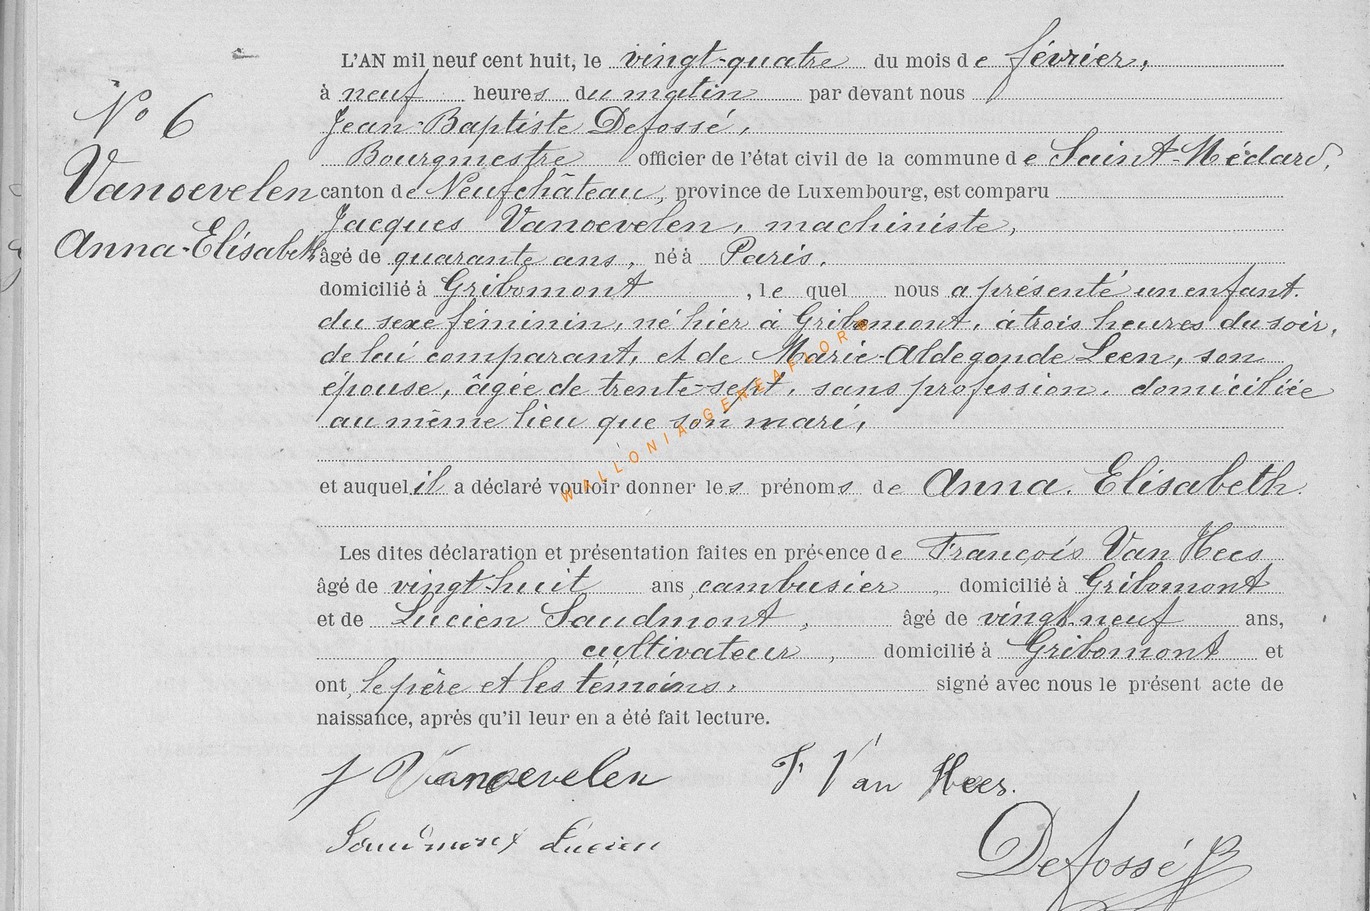 L'AN mil neuf cent huit, le vingt-quatre du mois de février,
à neuf heures du matin par devant nous
Jean-Baptiste Defossé,
Bourgmestre officier de l'état civil de la commune de Saint-Médard,
canton de Neufchâteau, province de Luxembourg, est comparu
Jacques Vanoevelen, machiniste,
âgé de quarante ans, né à Paris,
domicilié à Gribomont, le quel nous a présenté un enfant
du sexe féminin, né hier à Gribomont, à trois heures du soir,
de lui comparant, et de Marie-Aldegonde Leen, son
épouse, âgée de trente-sept, sans profession, domiciliée
au même lieu que son mari,
et auquel il a déclaré vouloir donner les prénoms de Anna. Elisabeth.
Les dites déclaration et présentation faites en présence de François Van Hees
âgé de vingt-huit ans, cambusier, domicilié à Gribomont
et de Lucien Saudmont, âgé de vingt-neuf ans,
cultivateur, domicilié à Gribomont et
ont, le père et les témoins, signé avec nous le présent acte de
naissance, après qu'il leur en a été fait lecture.
J Vanoevelen F Van Hees.
Lucien
Defossé JB
No 6
Vanoevelen
Anna-Elisabeth
WALLONIA GENEAFLORE